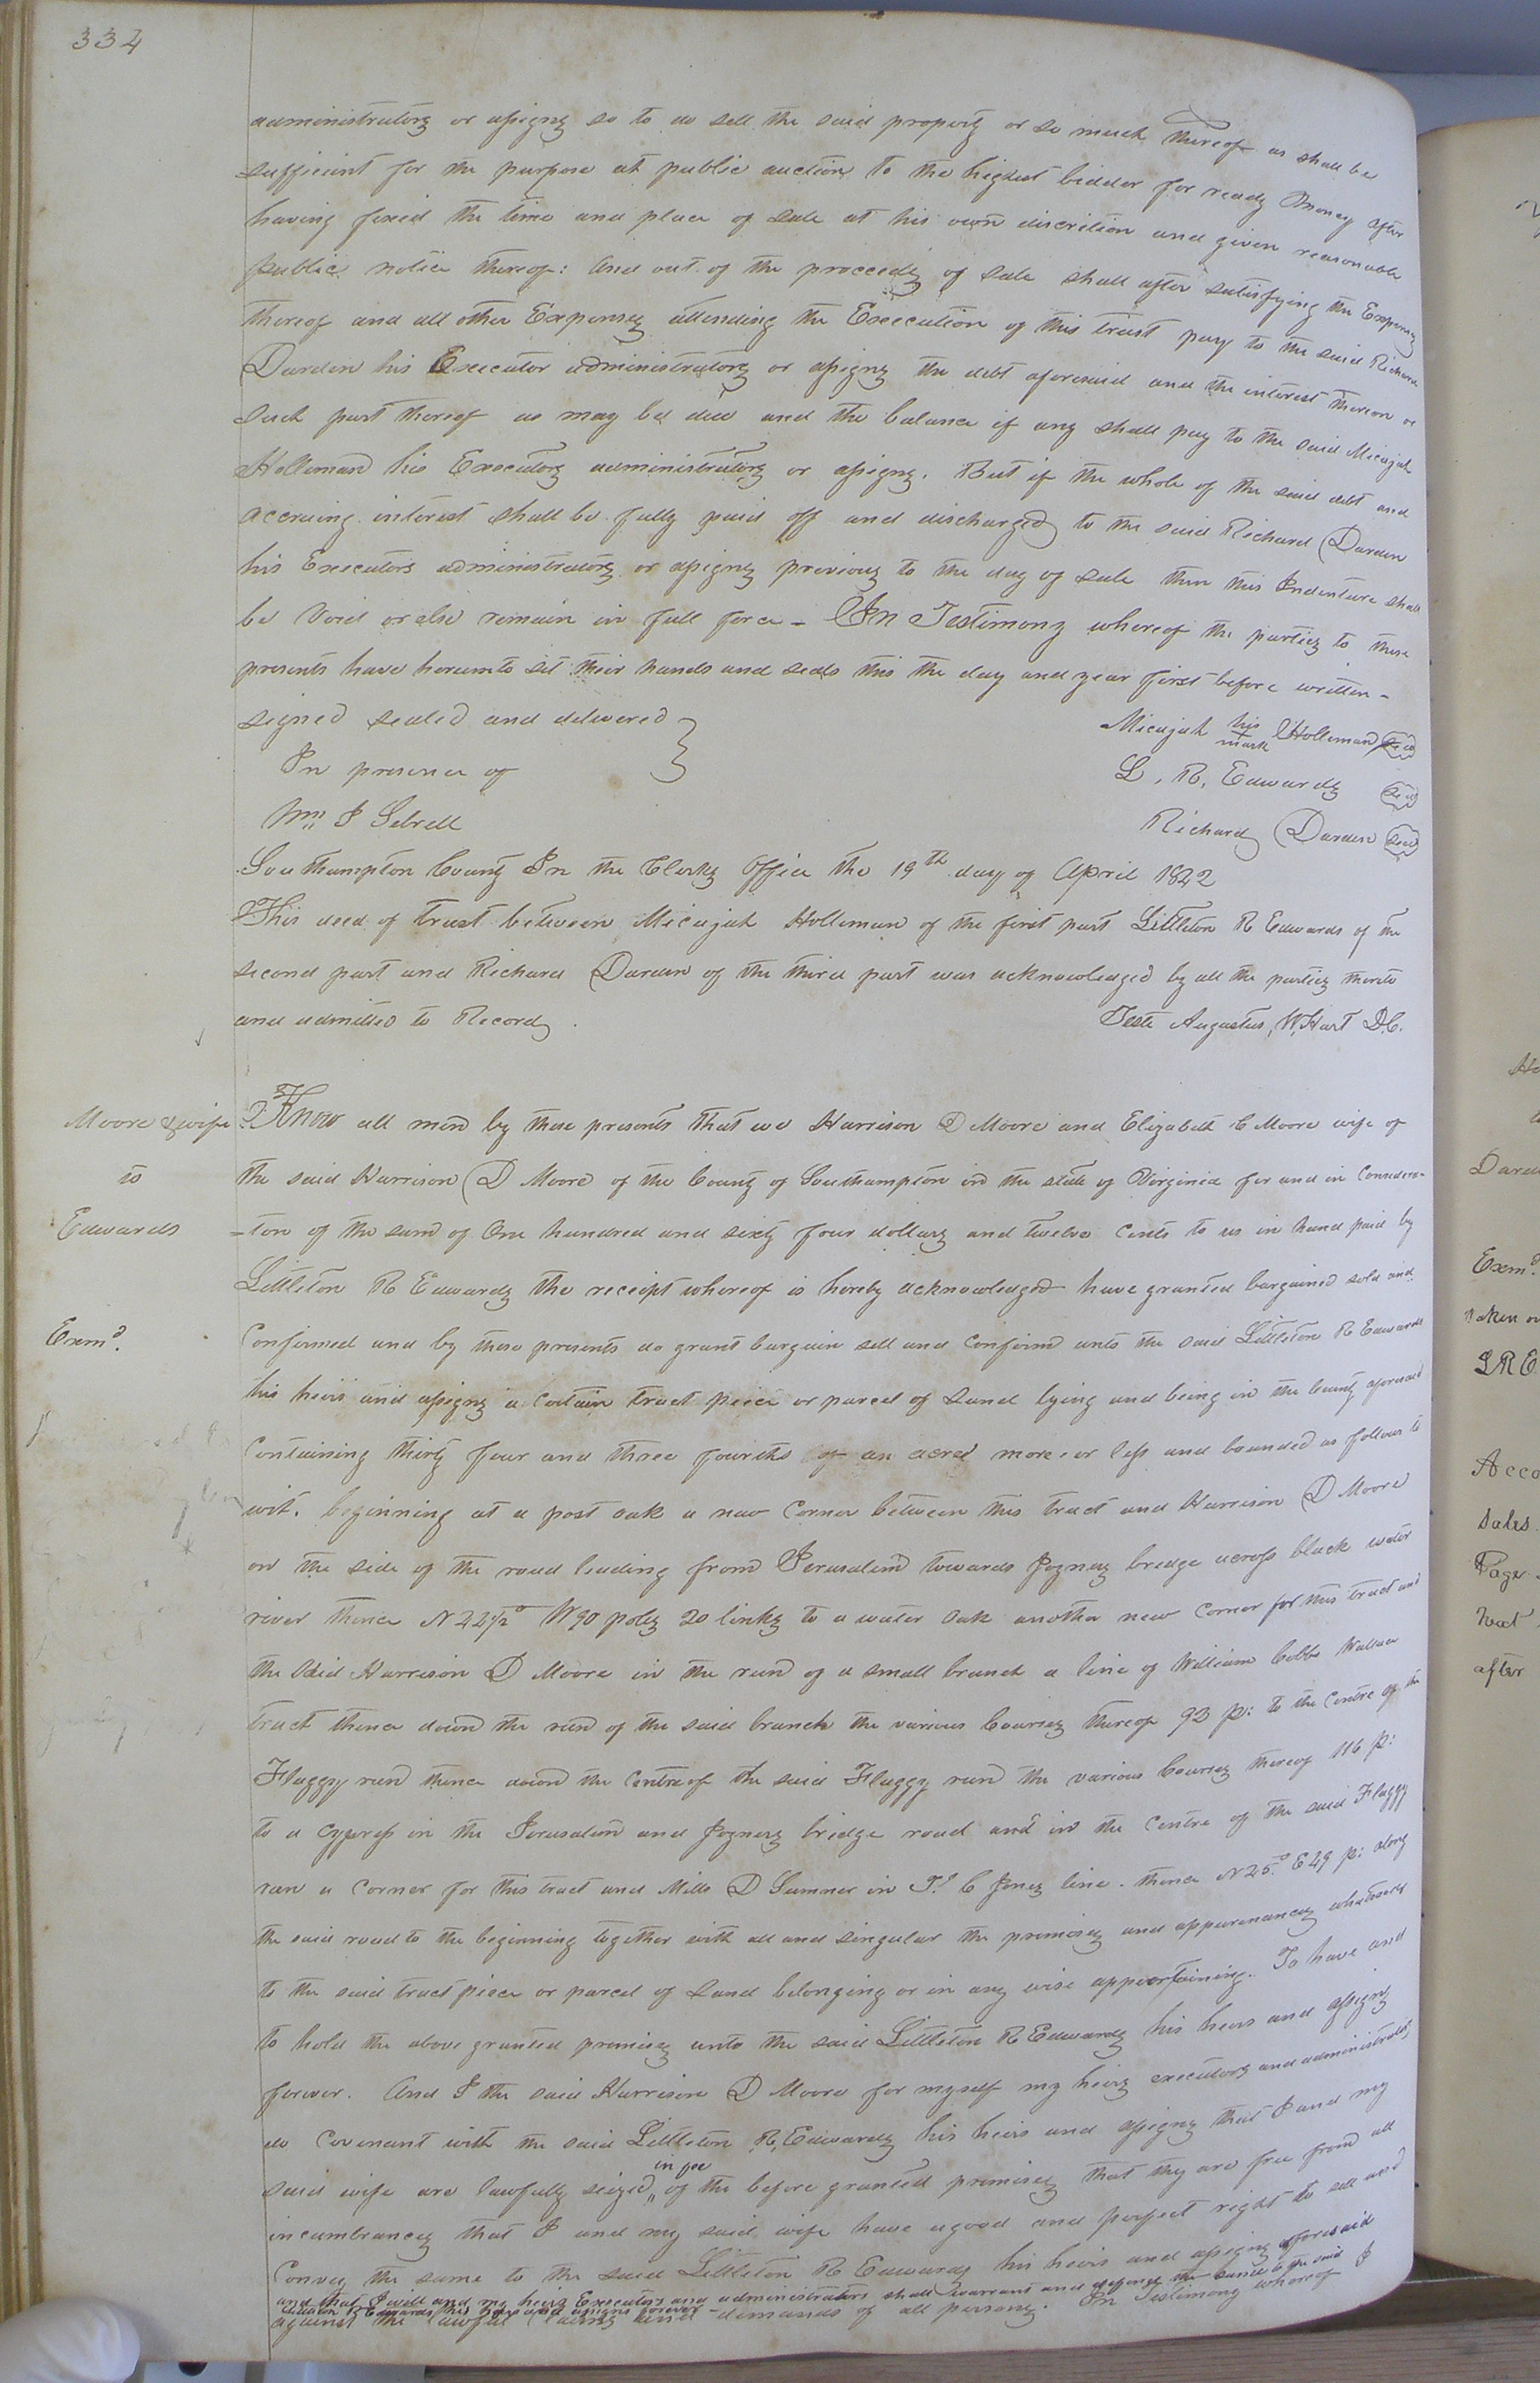 334
administrators or assigns so to do sell the said property or so much thereof as shall be
sufficient for the purpose at public auction to the highest bidder for ready money after
having fixed the time and place of sale at his own discretion and given reasonable
public notice thereof: And out of the proceeds of sale shall after satisfying the Expenses
thereof and all other Expenses attending the Execution of this trust pay to the said Richard
Darden his Executor administrators or assigns the debt aforesaid and the interest thereon or
such part thereof as may be due and the balance if any shall pay to the said Micajah
Holleman his Executors administrators or assigns. But if the whole of the said debt and
accruing interest shall be fully paid off and discharged to the said Richard Darden
his Executors administrators or assigns previous to the day of sale then this Indenture shall
be void or else remain in full force - In Testimony whereof the parties to these
presents have hereunto set their hands and seals this the day and year first before written -
signed sealed and delivered
In presence of
Wm J Sebrell
Micajah his mark Holleman Seal
L. R. Edwards Seal
Richard Darden Seal
Southampton County In the Clerks Office the 19th day of April 1842
This deed of trust between Micajah Holleman of the first part Littleton R Edwards of the
second part and Richard Darden of the third part was acknowledged by all the parties thereto
and admitted to Record.
Teste Augustus W. Hart D.C.
Moore & wife
to
Edwards
Exmd.
Know all men by these presents that we Harrison D Moore and Elizabeth C Moore wife of
the said Harrison D Moore of the County of Southampton in the state of Virginia for and in Considera-
-tion of the sum of One hundred and sixty four dollars and twelve Cents to us in hand paid by
Littleton R Edwards the receipt whereof is hereby acknowledged have granted bargained sold and
Confirmed and by these presents do grant bargain sell and Confirm unto the said Littleton R Edwards
his heirs and assigns a Certain tract peice or parcel of Land lying and being in the County aforesaid
Containing thirty four and three fourths of an acre more or less and bounded as follows to
wit. beginning at a post oak a new Corner between this tract and Harrison D Moore
on the side of the road leading from Jerusalem towards Joyners bridge across black water
river thence N 22½° W 90 poles 20 links to a water Oak another new Corner for this tract and
the said Harrison D Moore in the run of a small branch a line of William Cobbs Wallace
tract thence down the run of the said branch the various Courses thereof 93 p: to the Centre of the
Flaggy run thence down the Centre of the said Flaggy run the various Courses thereof 116 p:
to a cypress in the Jerusalem and Joyners bridge road and in the Centre of the said Flaggy
run a Corner for this tract and Mills D Sumner in C Jones line. thence N 25° E 49 p: along
the said road to the beginning together with all and singular the premises and appurtenances whatsoever
to the said tract piece or parcel of Land belonging or in any wise appertaining. To have and
to hold the above granted premises unto the said Littleton R Edwards his heirs and assigns
forever. And I the said Harrison D Moore for myself my heirs executors and administrators
do Covenant with the said Littleton R, Edwards his heirs and assigns that I and my
said wife are lawfully seized in fee of the before granted premises that they are free from all
incumbrances that I and my said wife have a good and perfect right to sell and
Convey the same to the said Littleton R Edwards his heirs and assigns aforesaid
and that I will and my heirs Executors and administrators shall warrant and defend the same to the said
Littleton R Edwards his heirs and assigns forever
against the lawful Claims and demands of all persons. In Testimony whereof I
Exmd.
taken
Acco
Sales
Page
Next
after